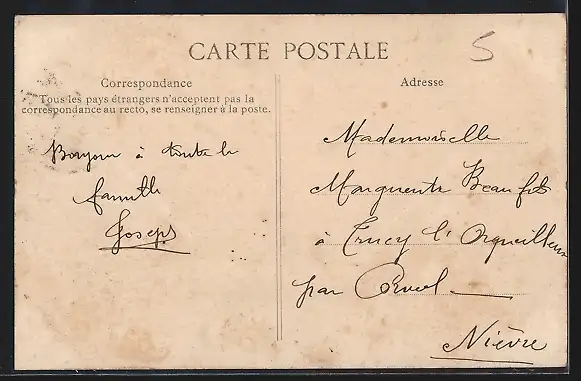 CARTE POSTALE
5
Correspondance
Tous les pays étrangers n'acceptent pas la
correspondance au recto, se renseigner à la poste.
Bonjour à toute la
famille
Joseph
Adresse
Mademoiselle
Marguerite Beaufils
à Trucy l'Orgueilleux
par Corvol
Nièvre